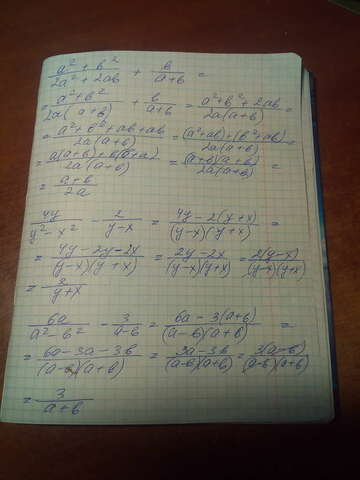 (a² + b²)/(2a² + 2ab) + b/(a+b) =
= (a² + b²)/(2a(a+b)) + b/(a+b) = (a² + b² + 2ab)/(2a(a+b)) =
= (a² + b² + ab + ab)/(2a(a+b)) = ((a² + ab) + (b² + ab))/(2a(a+b)) =
= (a(a+b) + b(b+a))/(2a(a+b)) = ((a+b)(a+b))/(2a(a+b)) =
= (a+b)/(2a)
4y/(y² - x²) - 2/(y-x) = (4y - 2(y+x))/((y-x)(y+x)) =
= (4y - 2y - 2x)/((y-x)(y+x)) = (2y - 2x)/((y-x)(y+x)) = 2(y-x)/((y-x)(y+x))
= 2/(y+x)
6a/(a² - b²) - 3/(a-b) = (6a - 3(a+b))/((a-b)(a+b)) =
= (6a - 3a - 3b)/((a-b)(a+b)) = (3a - 3b)/((a-b)(a+b)) = 3(a-b)/((a-b)(a+b))
= 3/(a+b)